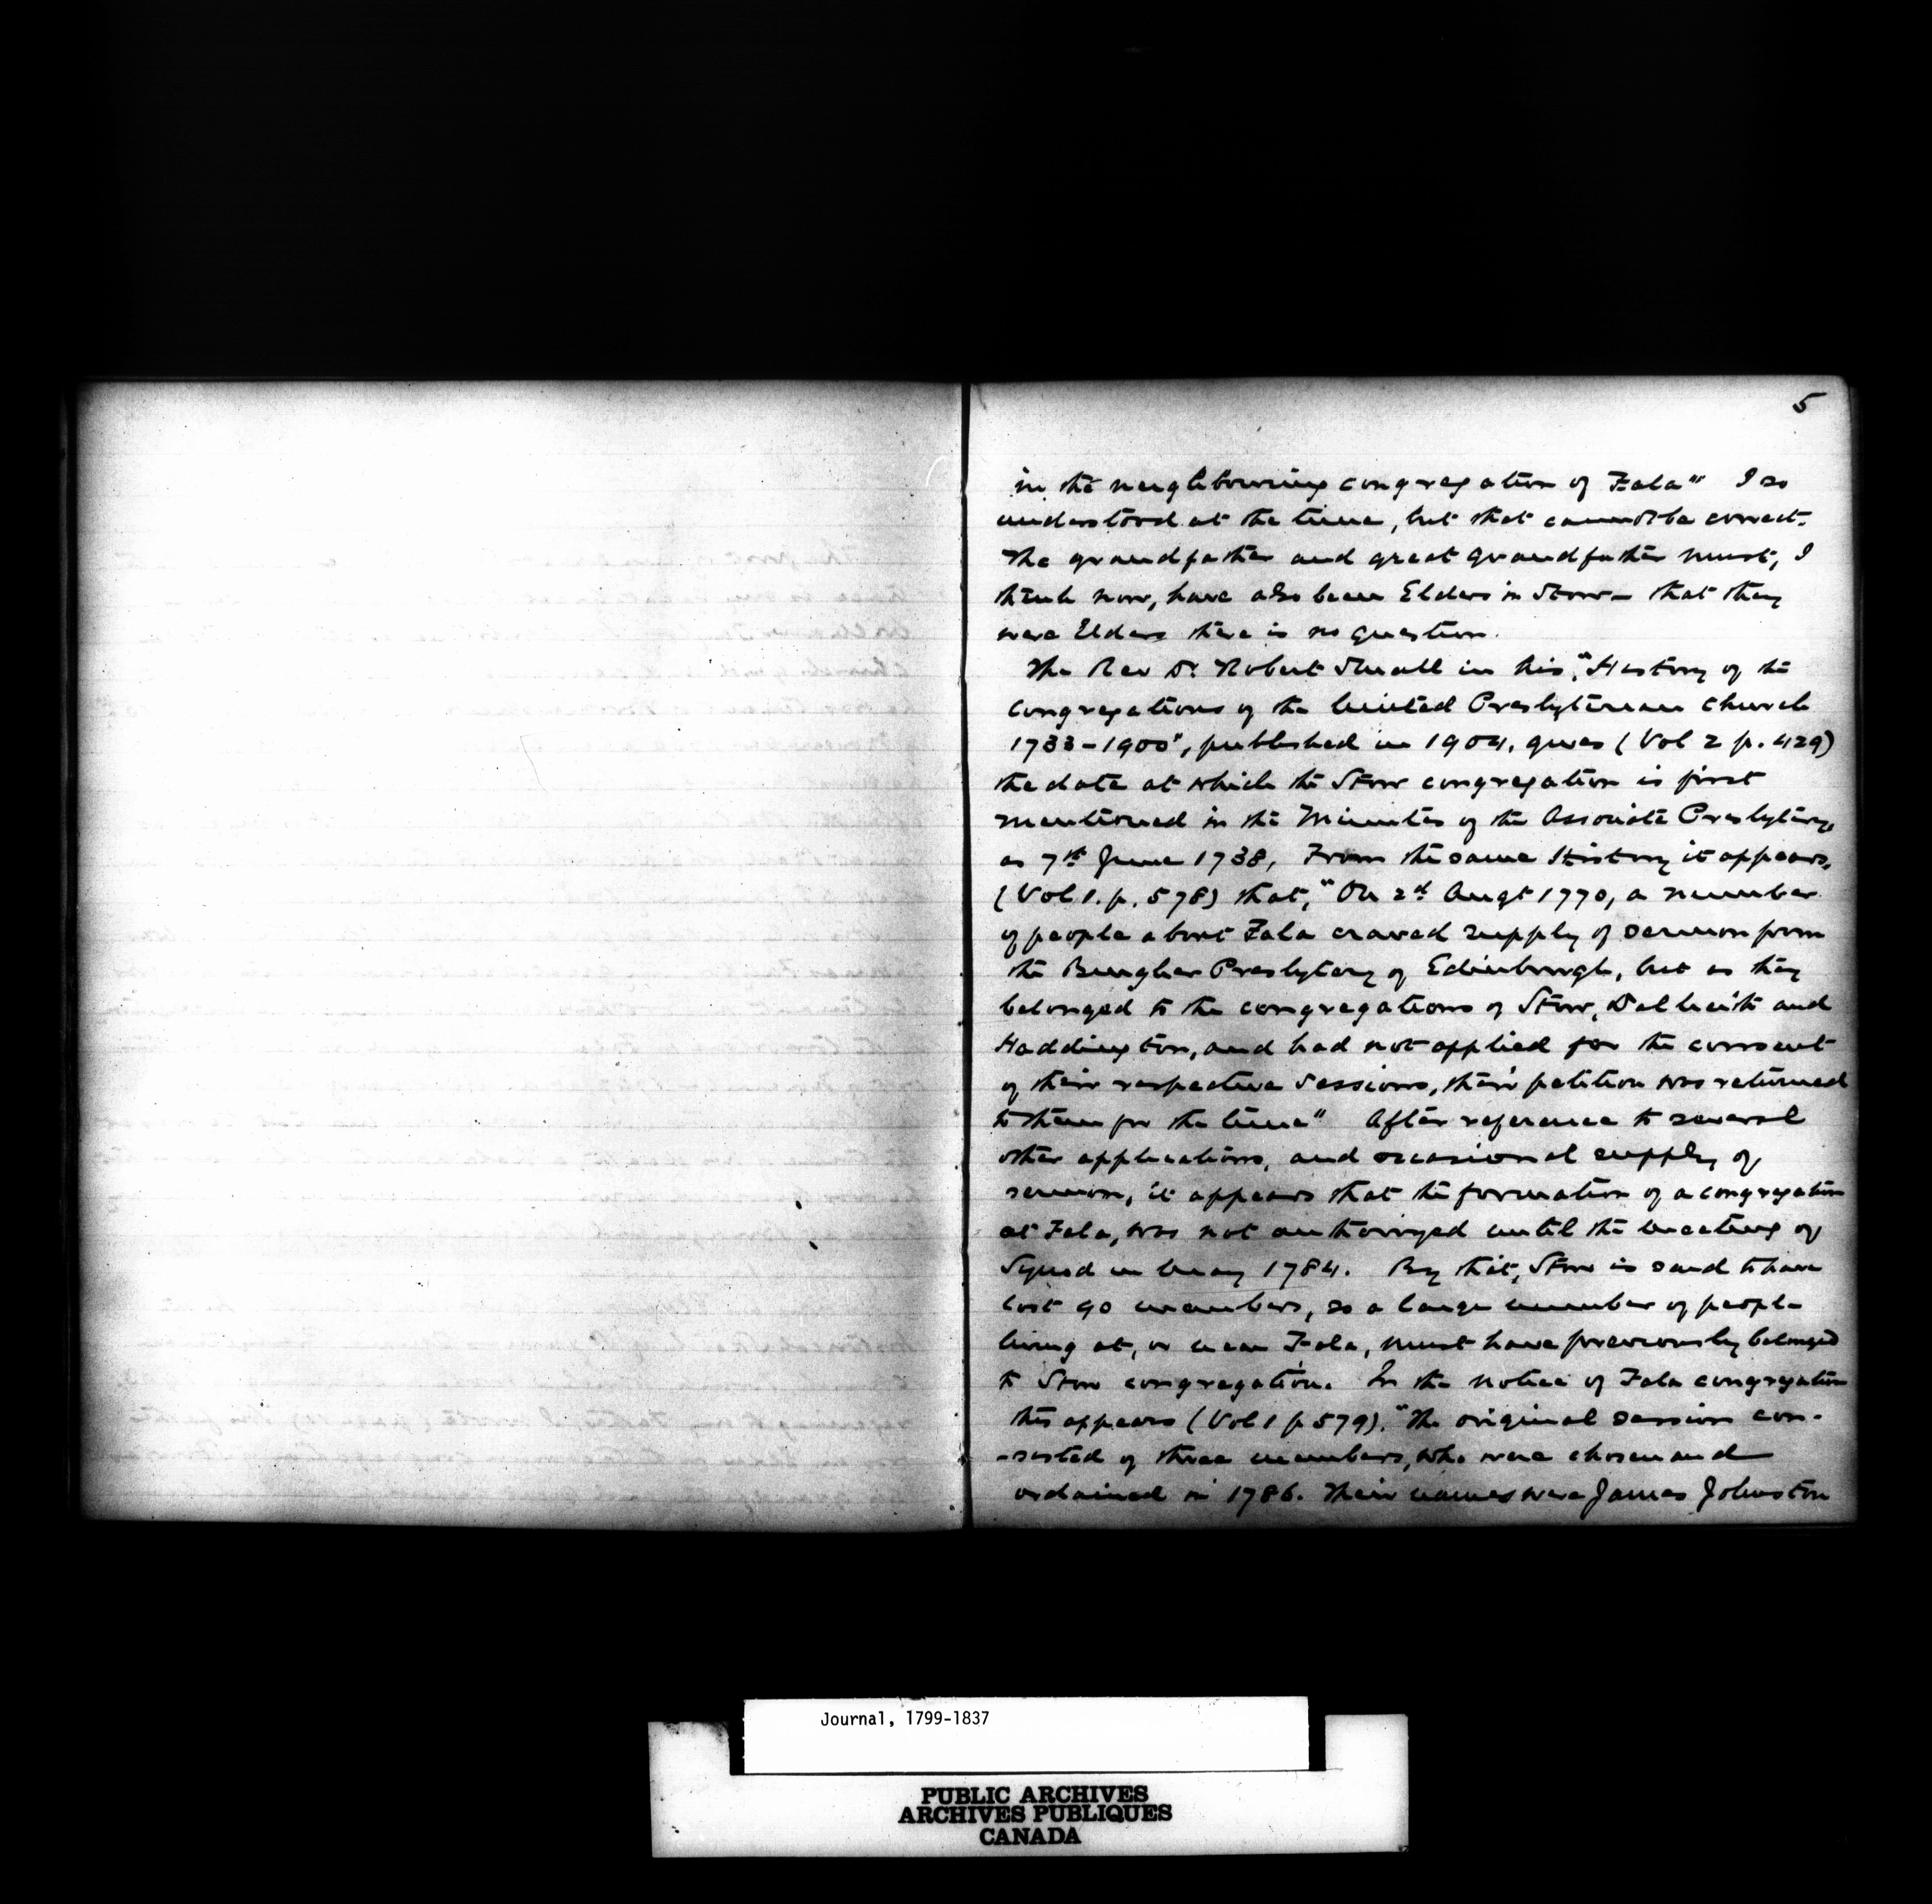 5
in the neighbouring congregation of Fala" I so
understood at the time, but that cannot be correct.
The grandfather and great grandfather must, I
think now, have also been Elders in Stow – that they
were Elders there is no question.
The Rev Dr. Robert Small in his, "History of the
Congregations of the United Presbyterian Church
1733–1900", published in 1904, gives (Vol 2 p. 429)
the date at which the Stow congregation is first
mentioned in the Minutes of the Associate Presbytery,
as 7th June 1738, From the same History it appears,
(Vol 1. p. 578) that, "On 2d Augt 1770, a number
of people about Fala craved supply of sermon from
the Burgher Presbytery of Edinburgh, but as they
belonged to the congregations of Stow, Dalkeith and
Haddington, and had not applied for the consent
of their respective Sessions, their petition was returned
to them for the time" After reference to several
other applications, and occasional supply of
sermon, it appears that the formation of a congregation
at Fala, was not authorized until the meeting of
Synod in May 1784. By that, Stow is said to have
lost 90 members, so a large number of people
living at, or near Fala, must have previously belonged
to Stow congregation. In the notice of Fala congregation
this appears (Vol 1 p 579). "The original session con-
-sisted of three members, who were chosen and
ordained in 1786. Their names were James Johnston
Journal, 1799-1837
PUBLIC ARCHIVES
ARCHIVES PUBLIQUES
CANADA